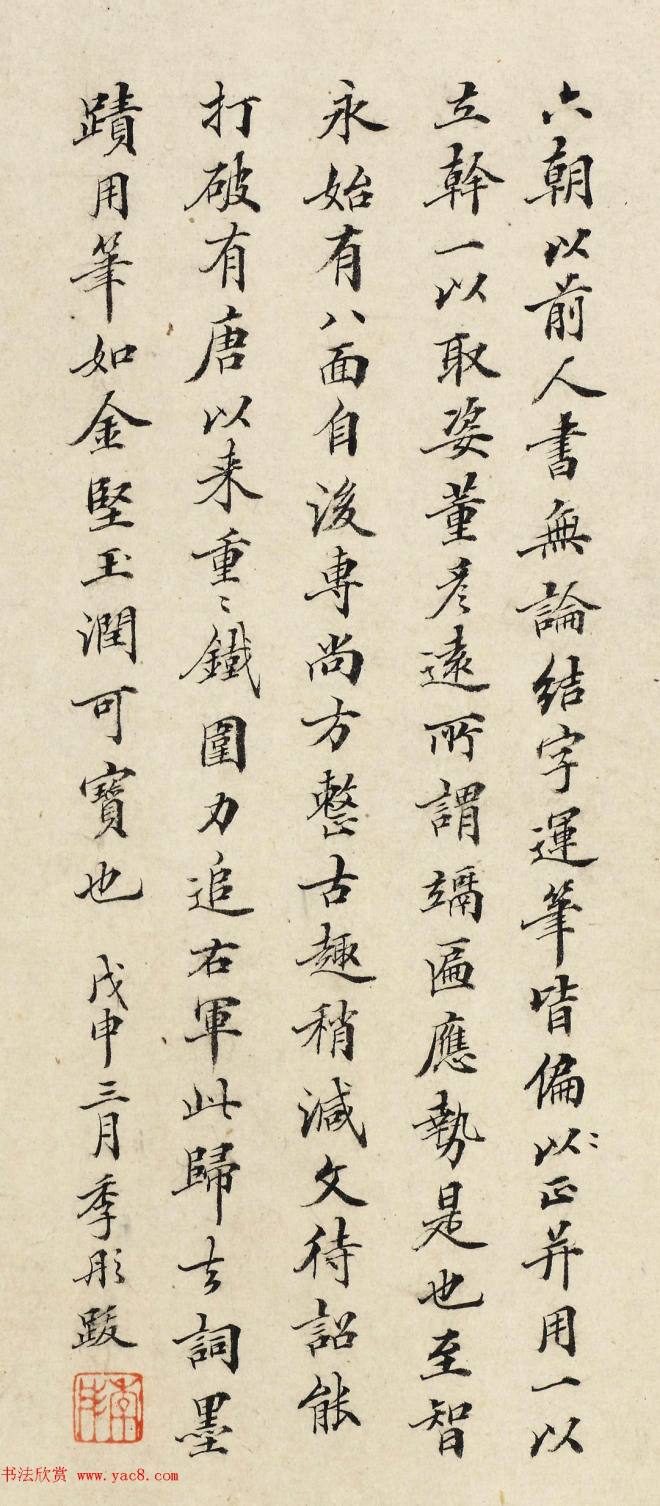 六朝以前人書無論結字運筆皆偏以〻正并用一以
立幹一以取姿董彦遠所謂竵匾應勢是也至智
永始有八面自後專尚方整古趣稍減文待詔能
打破有唐以来重〻鐵圍力追右軍此歸去詞墨
蹟用筆如金堅玉潤可寶也 戊申三月季彤跋
季彤
书法欣赏 www.yac8.com